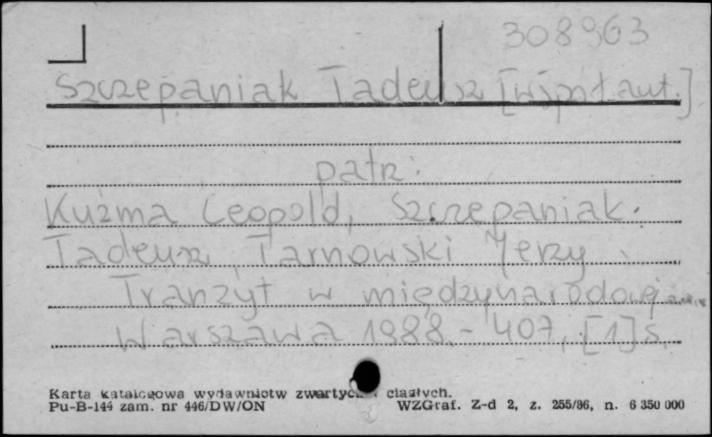 308963
Szczepaniak Tadeusz [współaut.]
patrz:
Kuźma Leopold, Szczepaniak
Tadeusz, Tarnowski Jerzy
Tranzyt w międzynarodowej
Warszawa 1988.- 407, [1] s.
Karta katalogowa wydawnictw zwartych i ciągłych.
Pu-B-144 zam. nr 446/DW/ON WZGraf. Z-d 2, z. 255/86, n. 6 350 000